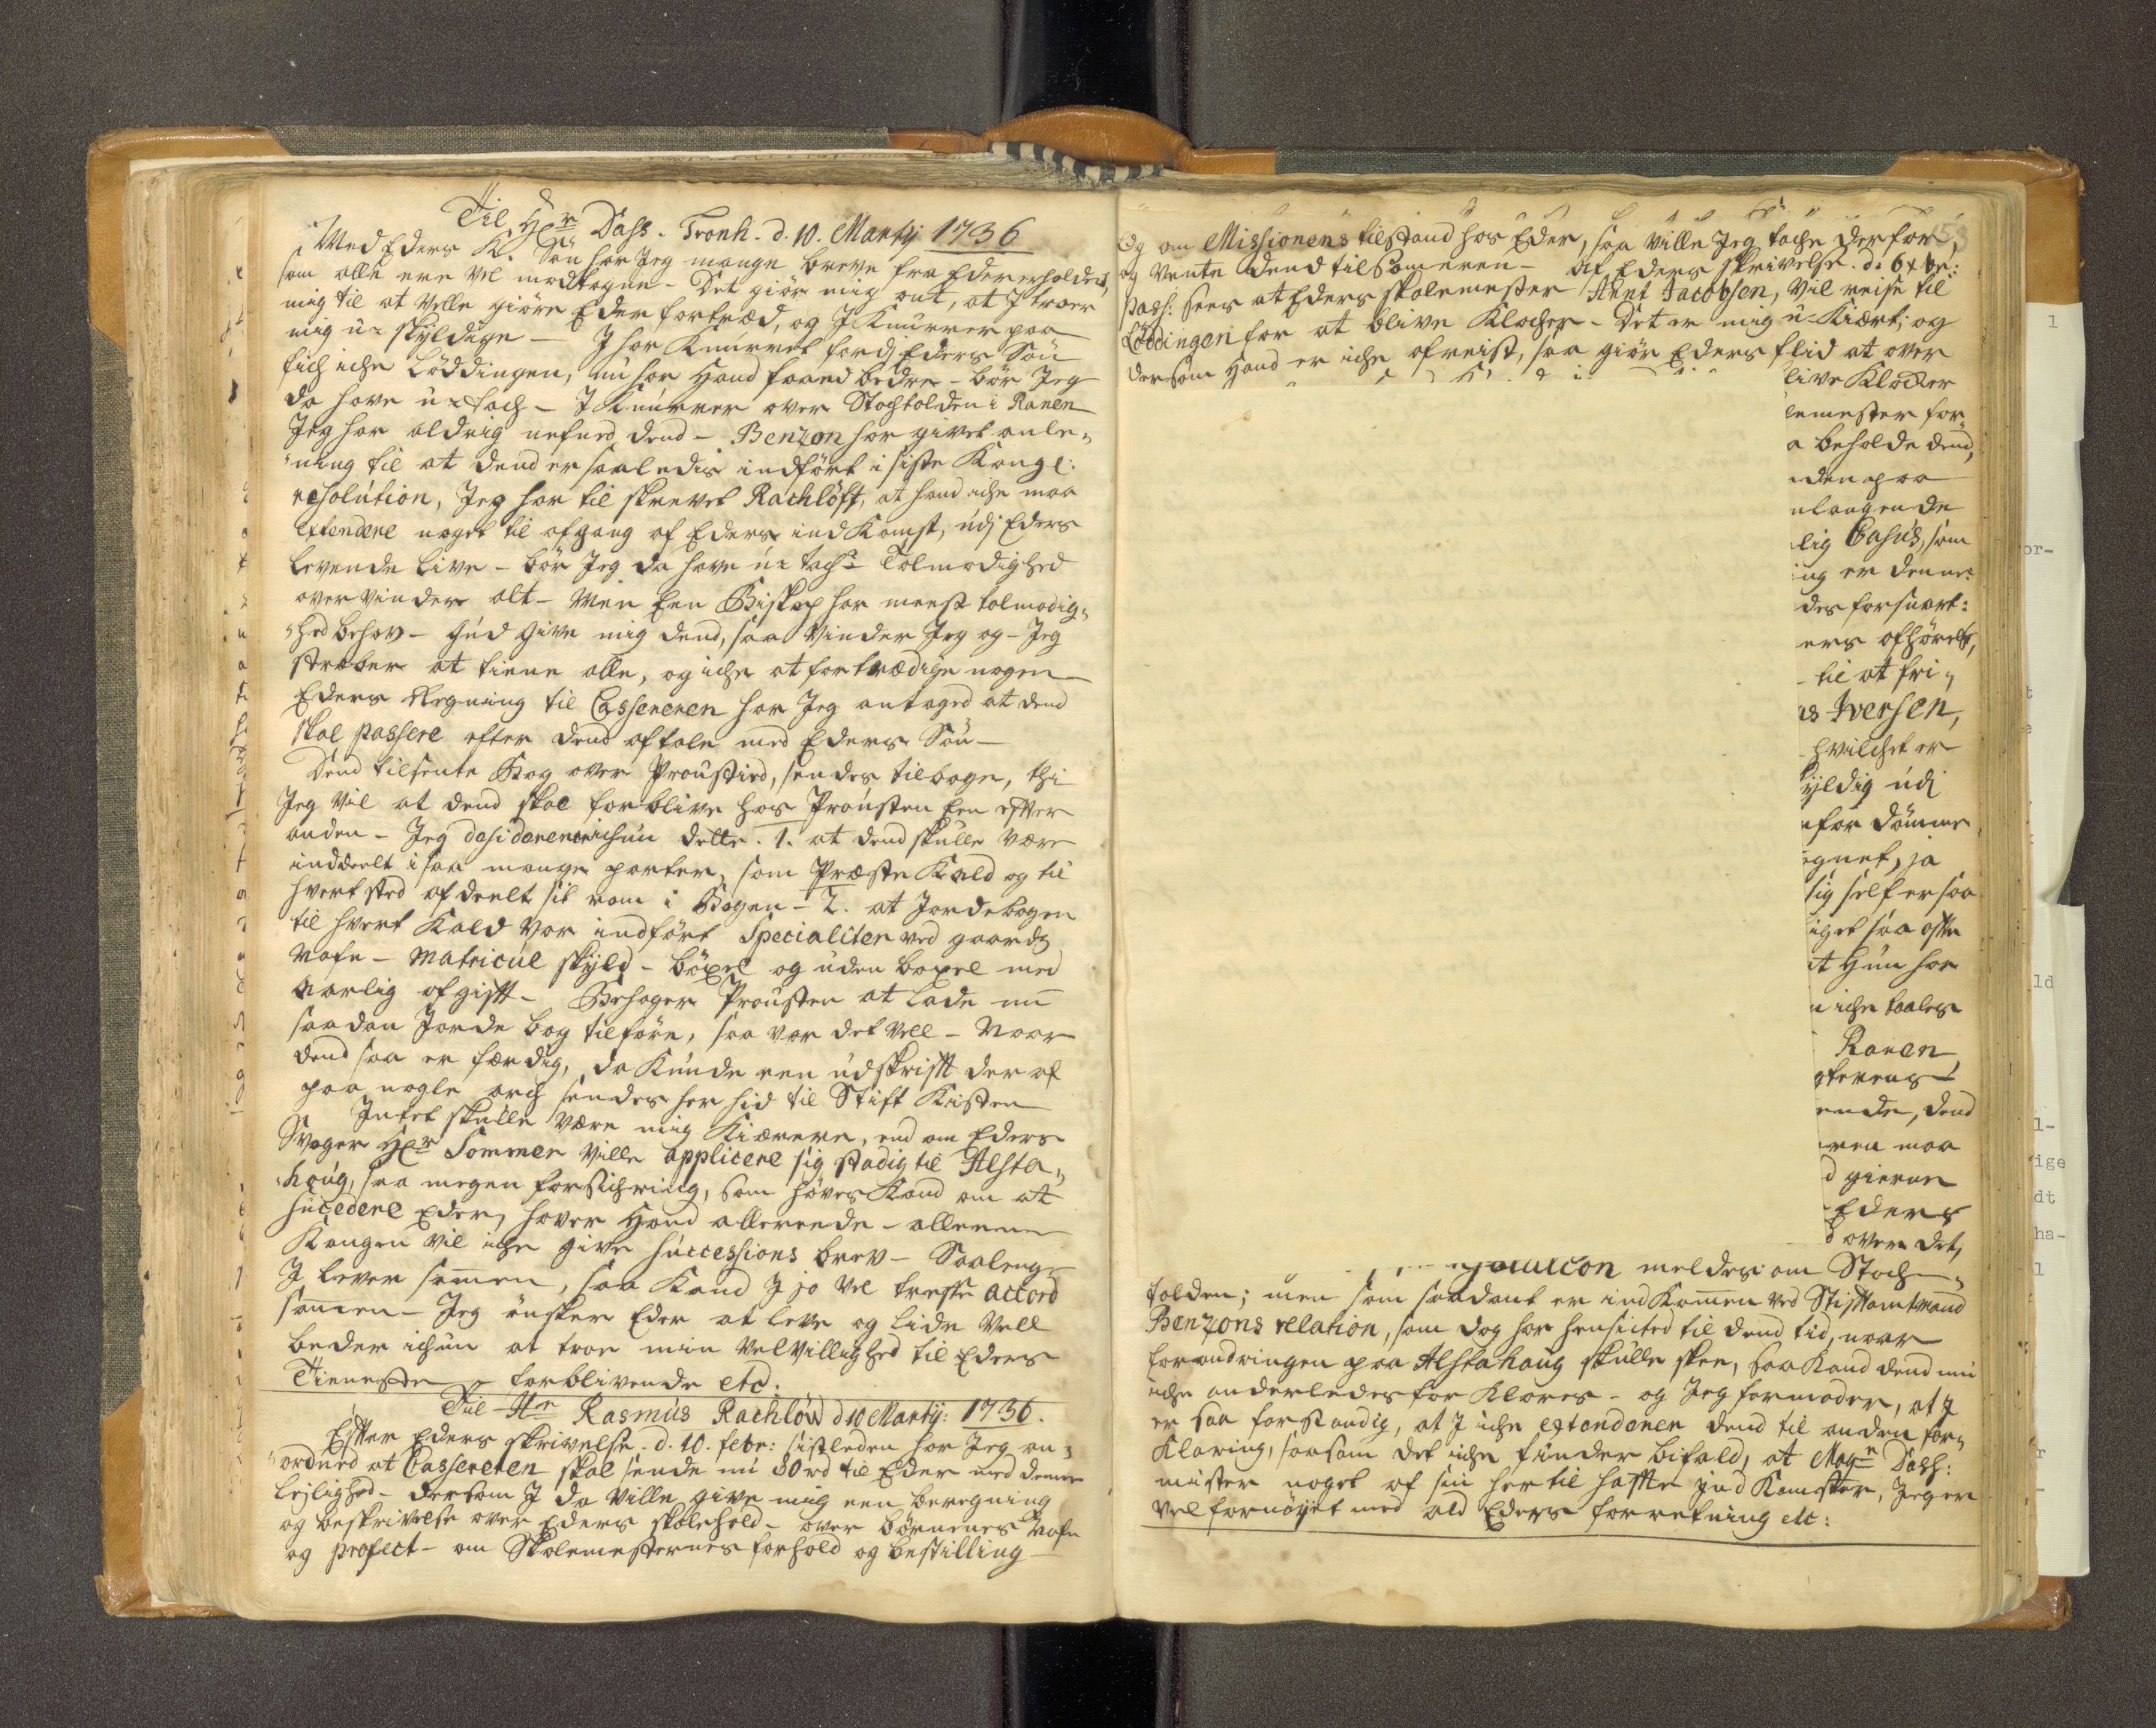 Til Hr Dass. Tronh. d. 10. Martij 1736
Med Eders K. Søn har Jeg mange breve fra Eder erholdet,
som alle ere vel modtagne - Det giør mig ont, at I troer
mig til at ville giøre Eder fortræd, og I Knurrer paa
mig u-skyldige - I har Knurret fordj Eders Søn
fich iche Löddingen, nu har Hand faaed bedre - bör Jeg
da have u-tach - I Knurrer over Stochtolden i Ranen
Jeg har aldrig nefned dend - Benzon har givet anle-
ning til at dend er saaledis indført i siste Kongl:
resolution, Jeg har til skrevet Rachlöff, at hand iche maa
extendere noget til afgang af Eders ind Komst, udj Eders
levende live - bör Jeg da have u-tach? Tolmodighed
over vinder alt - Men Een Biskop har meest tolmodig-
hed behov - Gud give mig dend, saa vinder Jeg og - Jeg
stræber at tiene alle, og iche at fortrædige nogen
Eders Regning til Casseneren har Jeg antaged at dend
skal passere efter dend aftale med Eders Søn -
Dend tilsente Bog over Proustied, sendes tilbage, thi
Jeg vil at dend skal forblive hos Prousten Een efter
anden - Jeg desidererer ichun dette. 1. at dend skulle være
inddeelt i saa mange parter, som Præste Kald og til
hvert sted afdeelt sit rom i Bogen - 2. at Jordebogen
til hvert Kald var indført Specialiter ved gaards
Nafn - Matricul skyld - böxel og uden boxel med
Aarlig afgifft - Behager Prousten at lade nu
saadan Jorde bog tilföre, saa var det vell - Naar
dend saa er færdig, da Kunde een udskrifft der af
paa nogle arch sendes her hid til Stift Kisten
Intet skulle være mig Kiærere, end om Eders
Svoger Hr Sommer ville applicere sig stadig til Alsta-
houg, saa megen forsichring, som høves Kand om at
succedere Eder, haver Hand allereede - alleene
Kongen vil iche give successions brev - Saalenge
I lever sammen, saa Kand I jo vel treffe accord
sammen - Jeg ønsker Eder at leve og lide vell
beder ichun at troe min velvillighed til Eders
Tieneste forblivende etc:
Til Hr Rasmus Rachlöw d 10 Martij: 1736.
Effter Eders skrivelse d. 10. febr: sistleden har Jeg an-
ordned at Cassereren skal sende nu 80 rd til Eder med denne
lejlighed - dersom I da ville give mig een beregning
og beskrivelse over Eders skolehold - over börnenes Nafn
og profect - om Skolemesternes forhold og bestilling -
Og om Missionens tilstand hos Eder, saa ville Jeg tache derfor,
og vente dend til Someren - Af Eders skrivelse d. 6 xbr:
pass: sees at Eders skolemester Arnt Jacobsen, vil reise til
Löddingen for at blive Klocher - Det er mig u-Kiært; og
dersom Hand er iche afreist, saa giør Eders flid at over
live Klocker
lemester for
a beholde dend,
nden paa
nlangende
lig Casus, som
ing er denne:
des forsvart:
ers afhøres,
til at fri-
as Iversen,
hvilchet er
yldig udj
for dömme
egnet, ja
sig self er saa
iget saa offte
t hun har
n iche taales
Ranen
gterens
ende, dend
ren maa
d gierne
Eders
d over det,
meldes om Stoch-
tolden; men som saadant er ind Kommen ved Stifftamtmand
Benzons relation, som dog har hensicted til dend tid, naar
forandringen paa Alstahaug skulle skee, saa Kand dend nu
iche anderledes for Klares - og Jeg formoder, at I
er saa forstandig, at I iche extenderer dend til anden for-
Klaring, saasom det iche finder bifald, at Magr Dass:
mister noget af sin her til haffte ind Komster, Jeg er
vel fornøyet med ald Eders forretning etc: